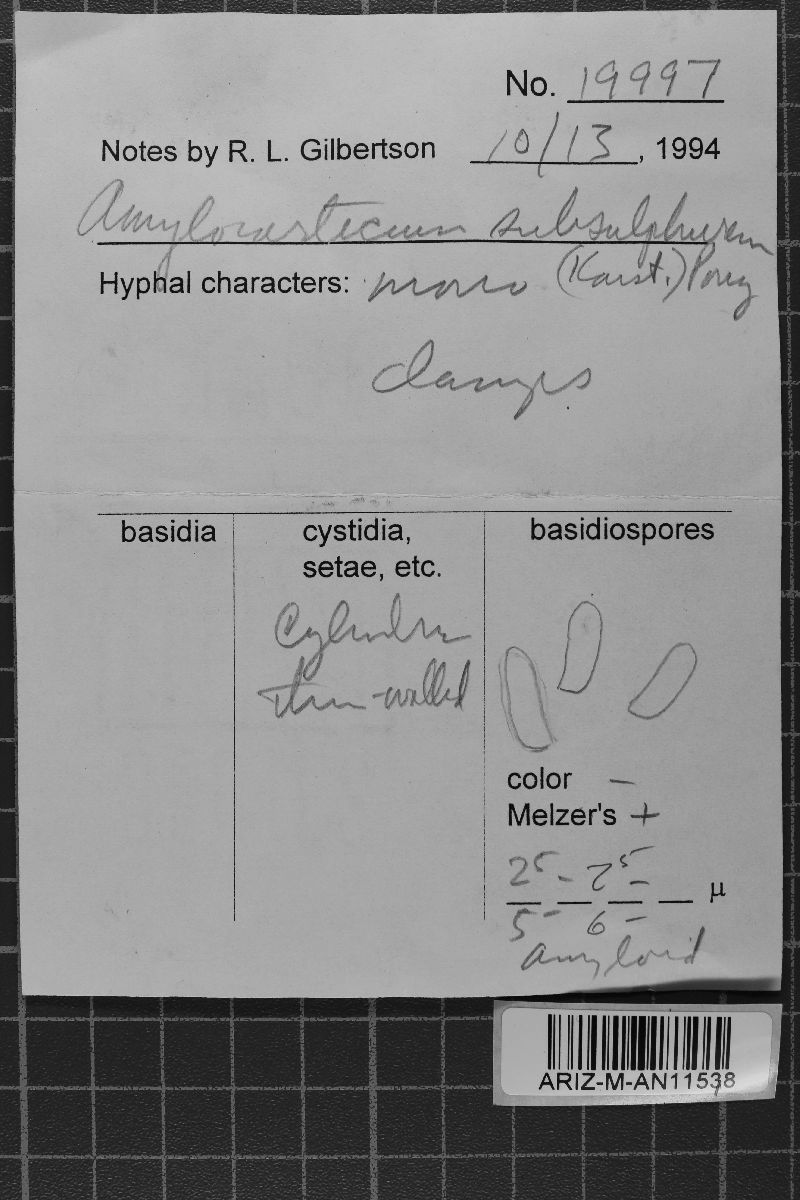 No. 19997
Notes by R. L. Gilbertson 10/13, 1994
Amylocorticium subsulphureum
Hyphal characters: mono (Karst.) Pouz
clamps
basidia
cystidia,
setae, etc.
Cylindric
thin-walled
basidiospores
color –
Melzer's +
2⁵ – 2⁵ –
µ
5 – 6 –
amyloid
ARIZ-M-AN11538